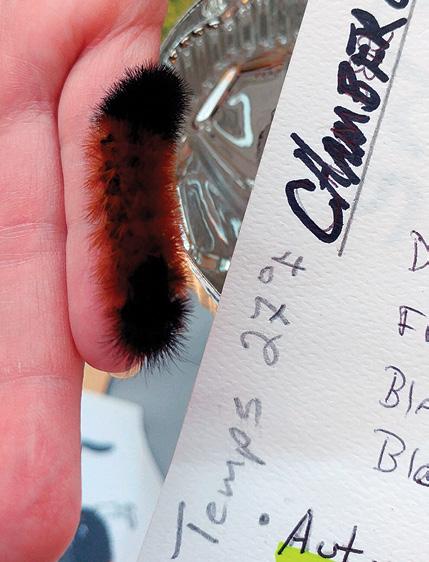 CHAMBER
Temps 27°F
D
Fe
Bla
Bla
• Aut